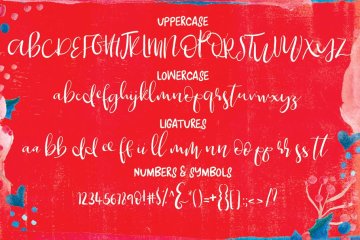 UPPERCASE
ABCDEFGHIJKLMNOPQRSTUVWXYZ
LOWERCASE
abcdefghijklmnopqrstuvwxyz
LIGATURES
aa bb dd ee ff ll mm nn oo pp rr ss tt
NUMBERS & SYMBOLS